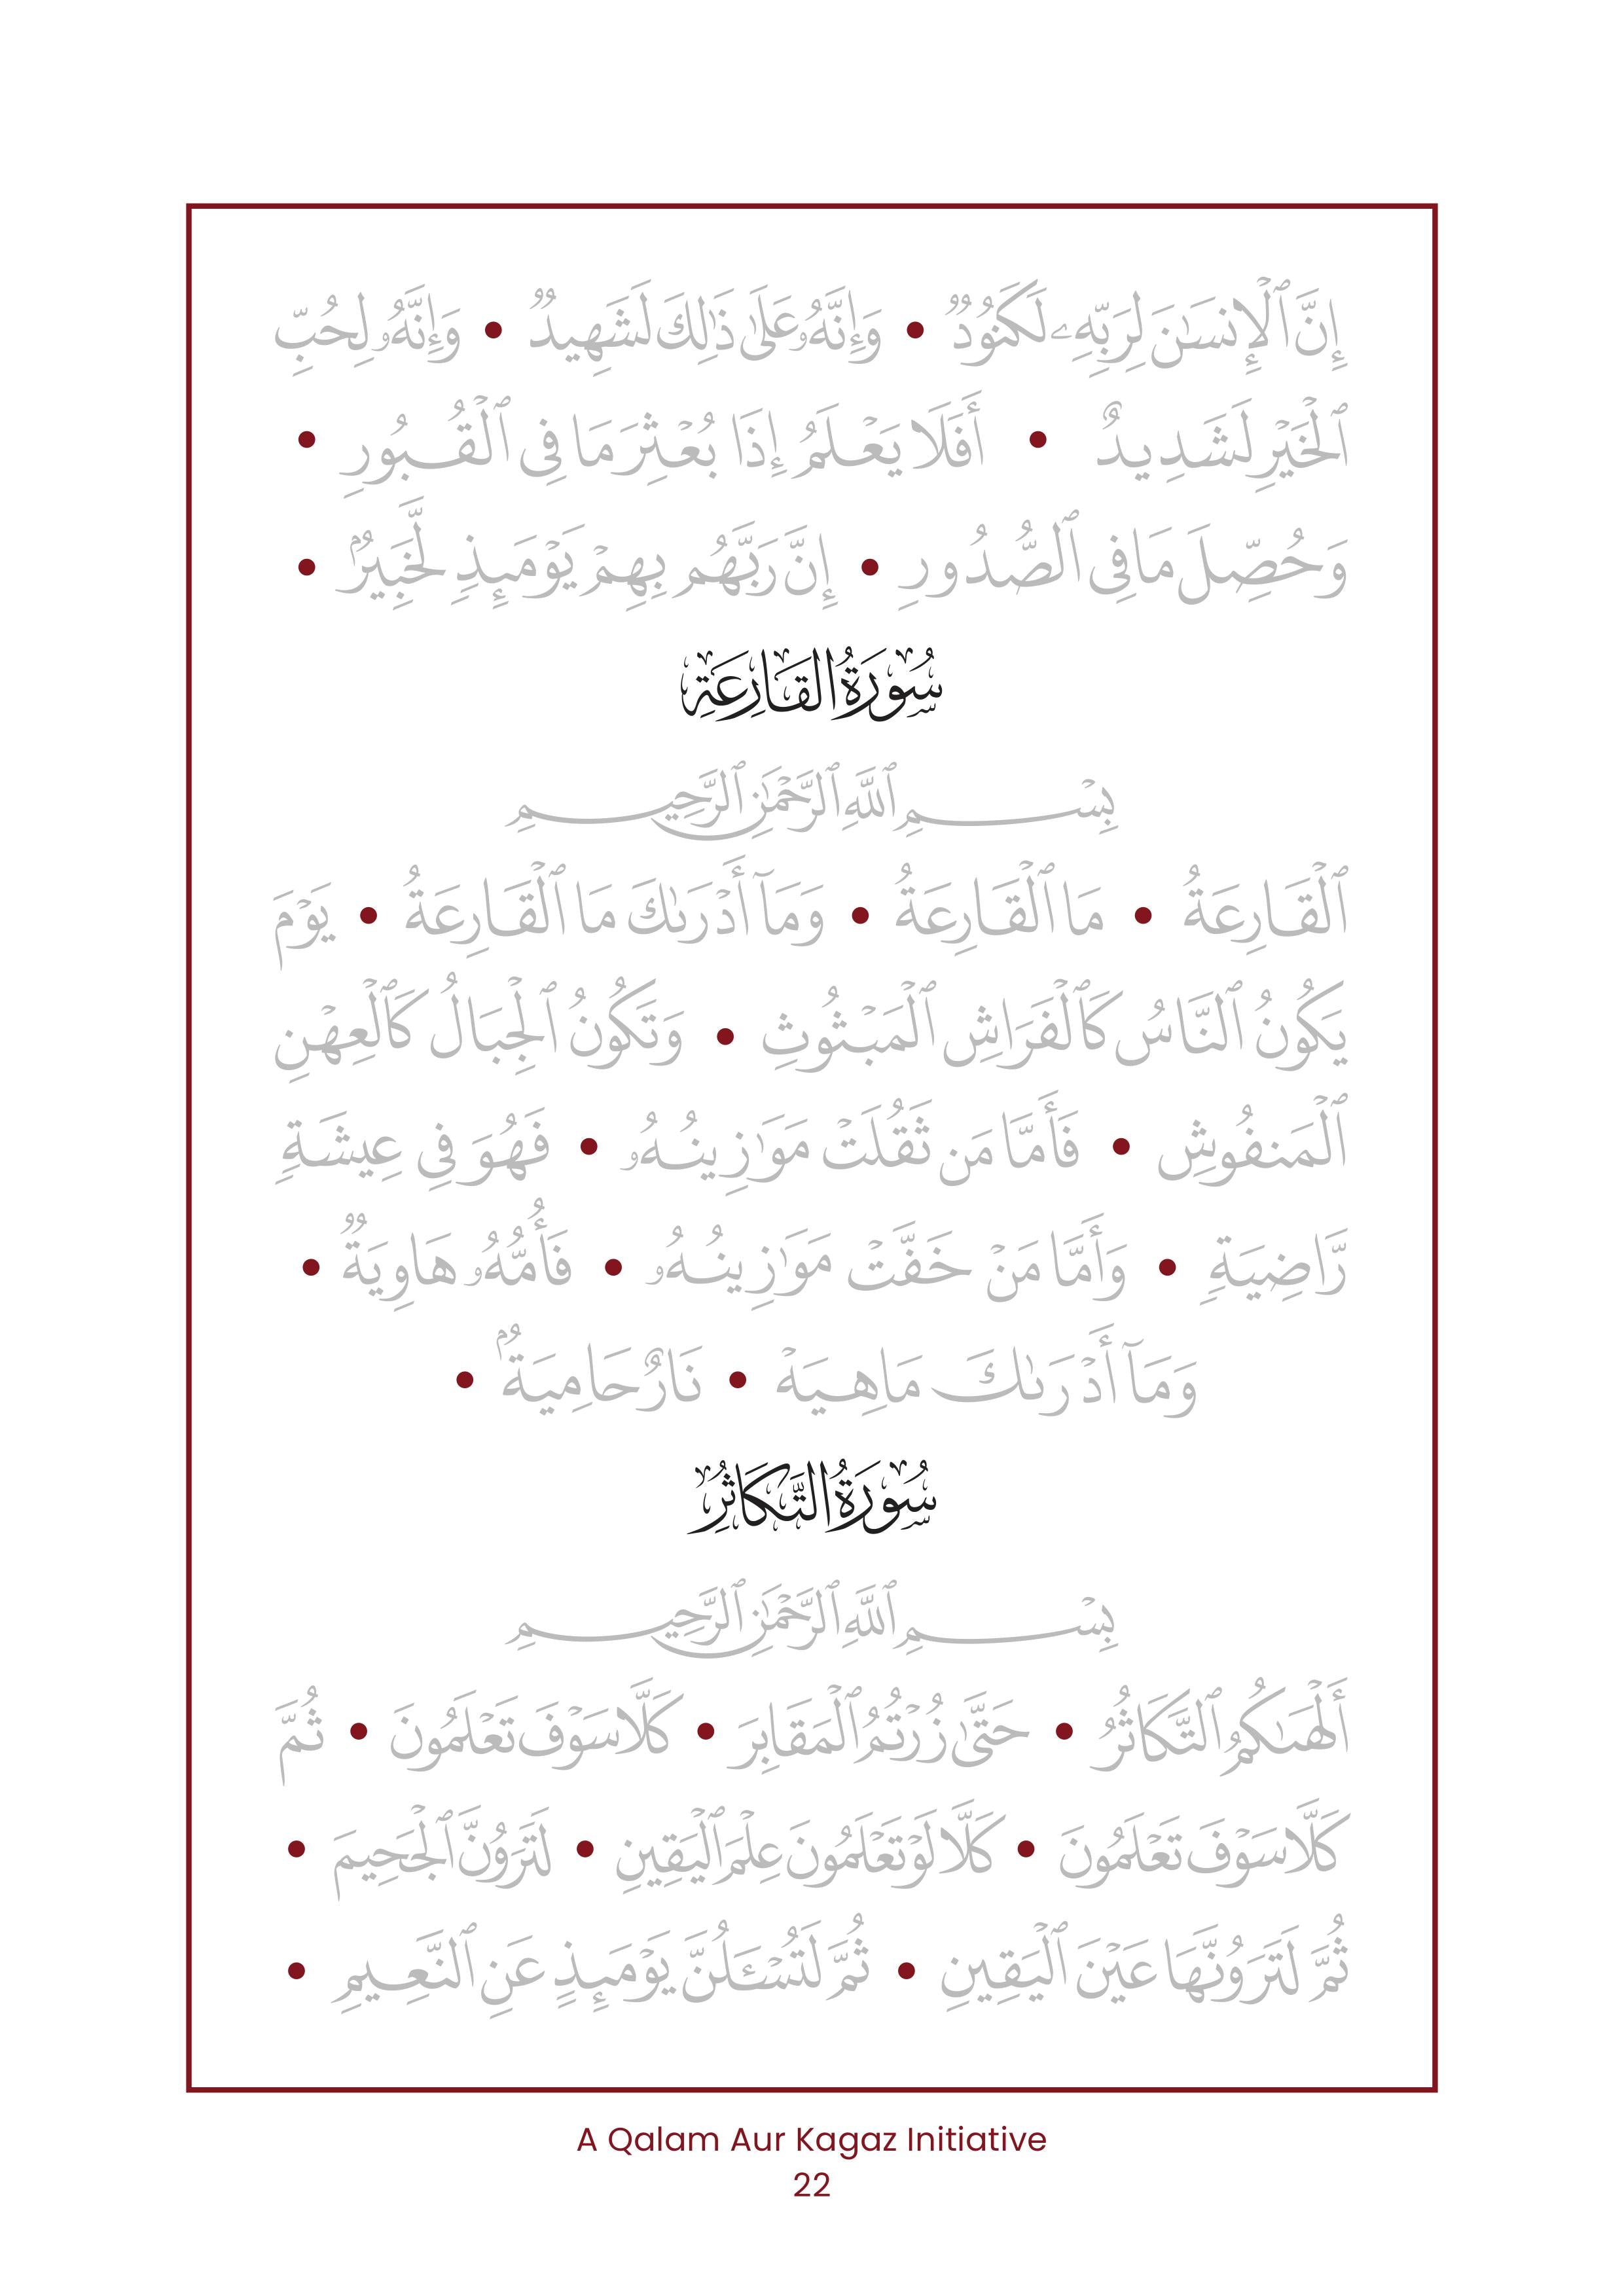 إِنَّ ٱلْإِنسَٰنَ لِرَبِّهِۦ لَكَنُودٌ • وَإِنَّهُۥ عَلَىٰ ذَٰلِكَ لَشَهِيدٌ • وَإِنَّهُۥ لِحُبِّ
ٱلْخَيْرِ لَشَدِيدٌ • أَفَلَا يَعْلَمُ إِذَا بُعْثِرَ مَا فِى ٱلْقُبُورِ •
وَحُصِّلَ مَا فِى ٱلصُّدُورِ • إِنَّ رَبَّهُم بِهِمْ يَوْمَئِذٍ لَّخَبِيرٌۢ •
سُورَةُ القَارِعَةِ
بِسْمِ ٱللَّهِ ٱلرَّحْمَٰنِ ٱلرَّحِيمِ
ٱلْقَارِعَةُ • مَا ٱلْقَارِعَةُ • وَمَآ أَدْرَىٰكَ مَا ٱلْقَارِعَةُ • يَوْمَ
يَكُونُ ٱلنَّاسُ كَٱلْفَرَاشِ ٱلْمَبْثُوثِ • وَتَكُونُ ٱلْجِبَالُ كَٱلْعِهْنِ
ٱلْمَنفُوشِ • فَأَمَّا مَن ثَقُلَتْ مَوَٰزِينُهُۥ • فَهُوَ فِى عِيشَةٍ
رَّاضِيَةٍ • وَأَمَّا مَنْ خَفَّتْ مَوَٰزِينُهُۥ • فَأُمُّهُۥ هَاوِيَةٌ •
وَمَآ أَدْرَىٰكَ مَا هِيَهْ • نَارٌ حَامِيَةٌۢ •
سُورَةُ التَّكَاثُرِ
بِسْمِ ٱللَّهِ ٱلرَّحْمَٰنِ ٱلرَّحِيمِ
أَلْهَىٰكُمُ ٱلتَّكَاثُرُ • حَتَّىٰ زُرْتُمُ ٱلْمَقَابِرَ • كَلَّا سَوْفَ تَعْلَمُونَ • ثُمَّ
كَلَّا سَوْفَ تَعْلَمُونَ • كَلَّا لَوْ تَعْلَمُونَ عِلْمَ ٱلْيَقِينِ • لَتَرَوُنَّ ٱلْجَحِيمَ •
ثُمَّ لَتَرَوُنَّهَا عَيْنَ ٱلْيَقِينِ • ثُمَّ لَتُسْـَٔلُنَّ يَوْمَئِذٍ عَنِ ٱلنَّعِيمِ •
A Qalam Aur Kagaz Initiative
22